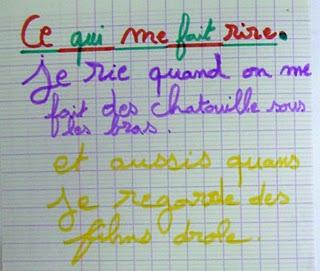 Ce qui me fait rire.
je rie quand on me
fait des chatouille sous
les bras.
et aussis quans
je regarde des
films drole.